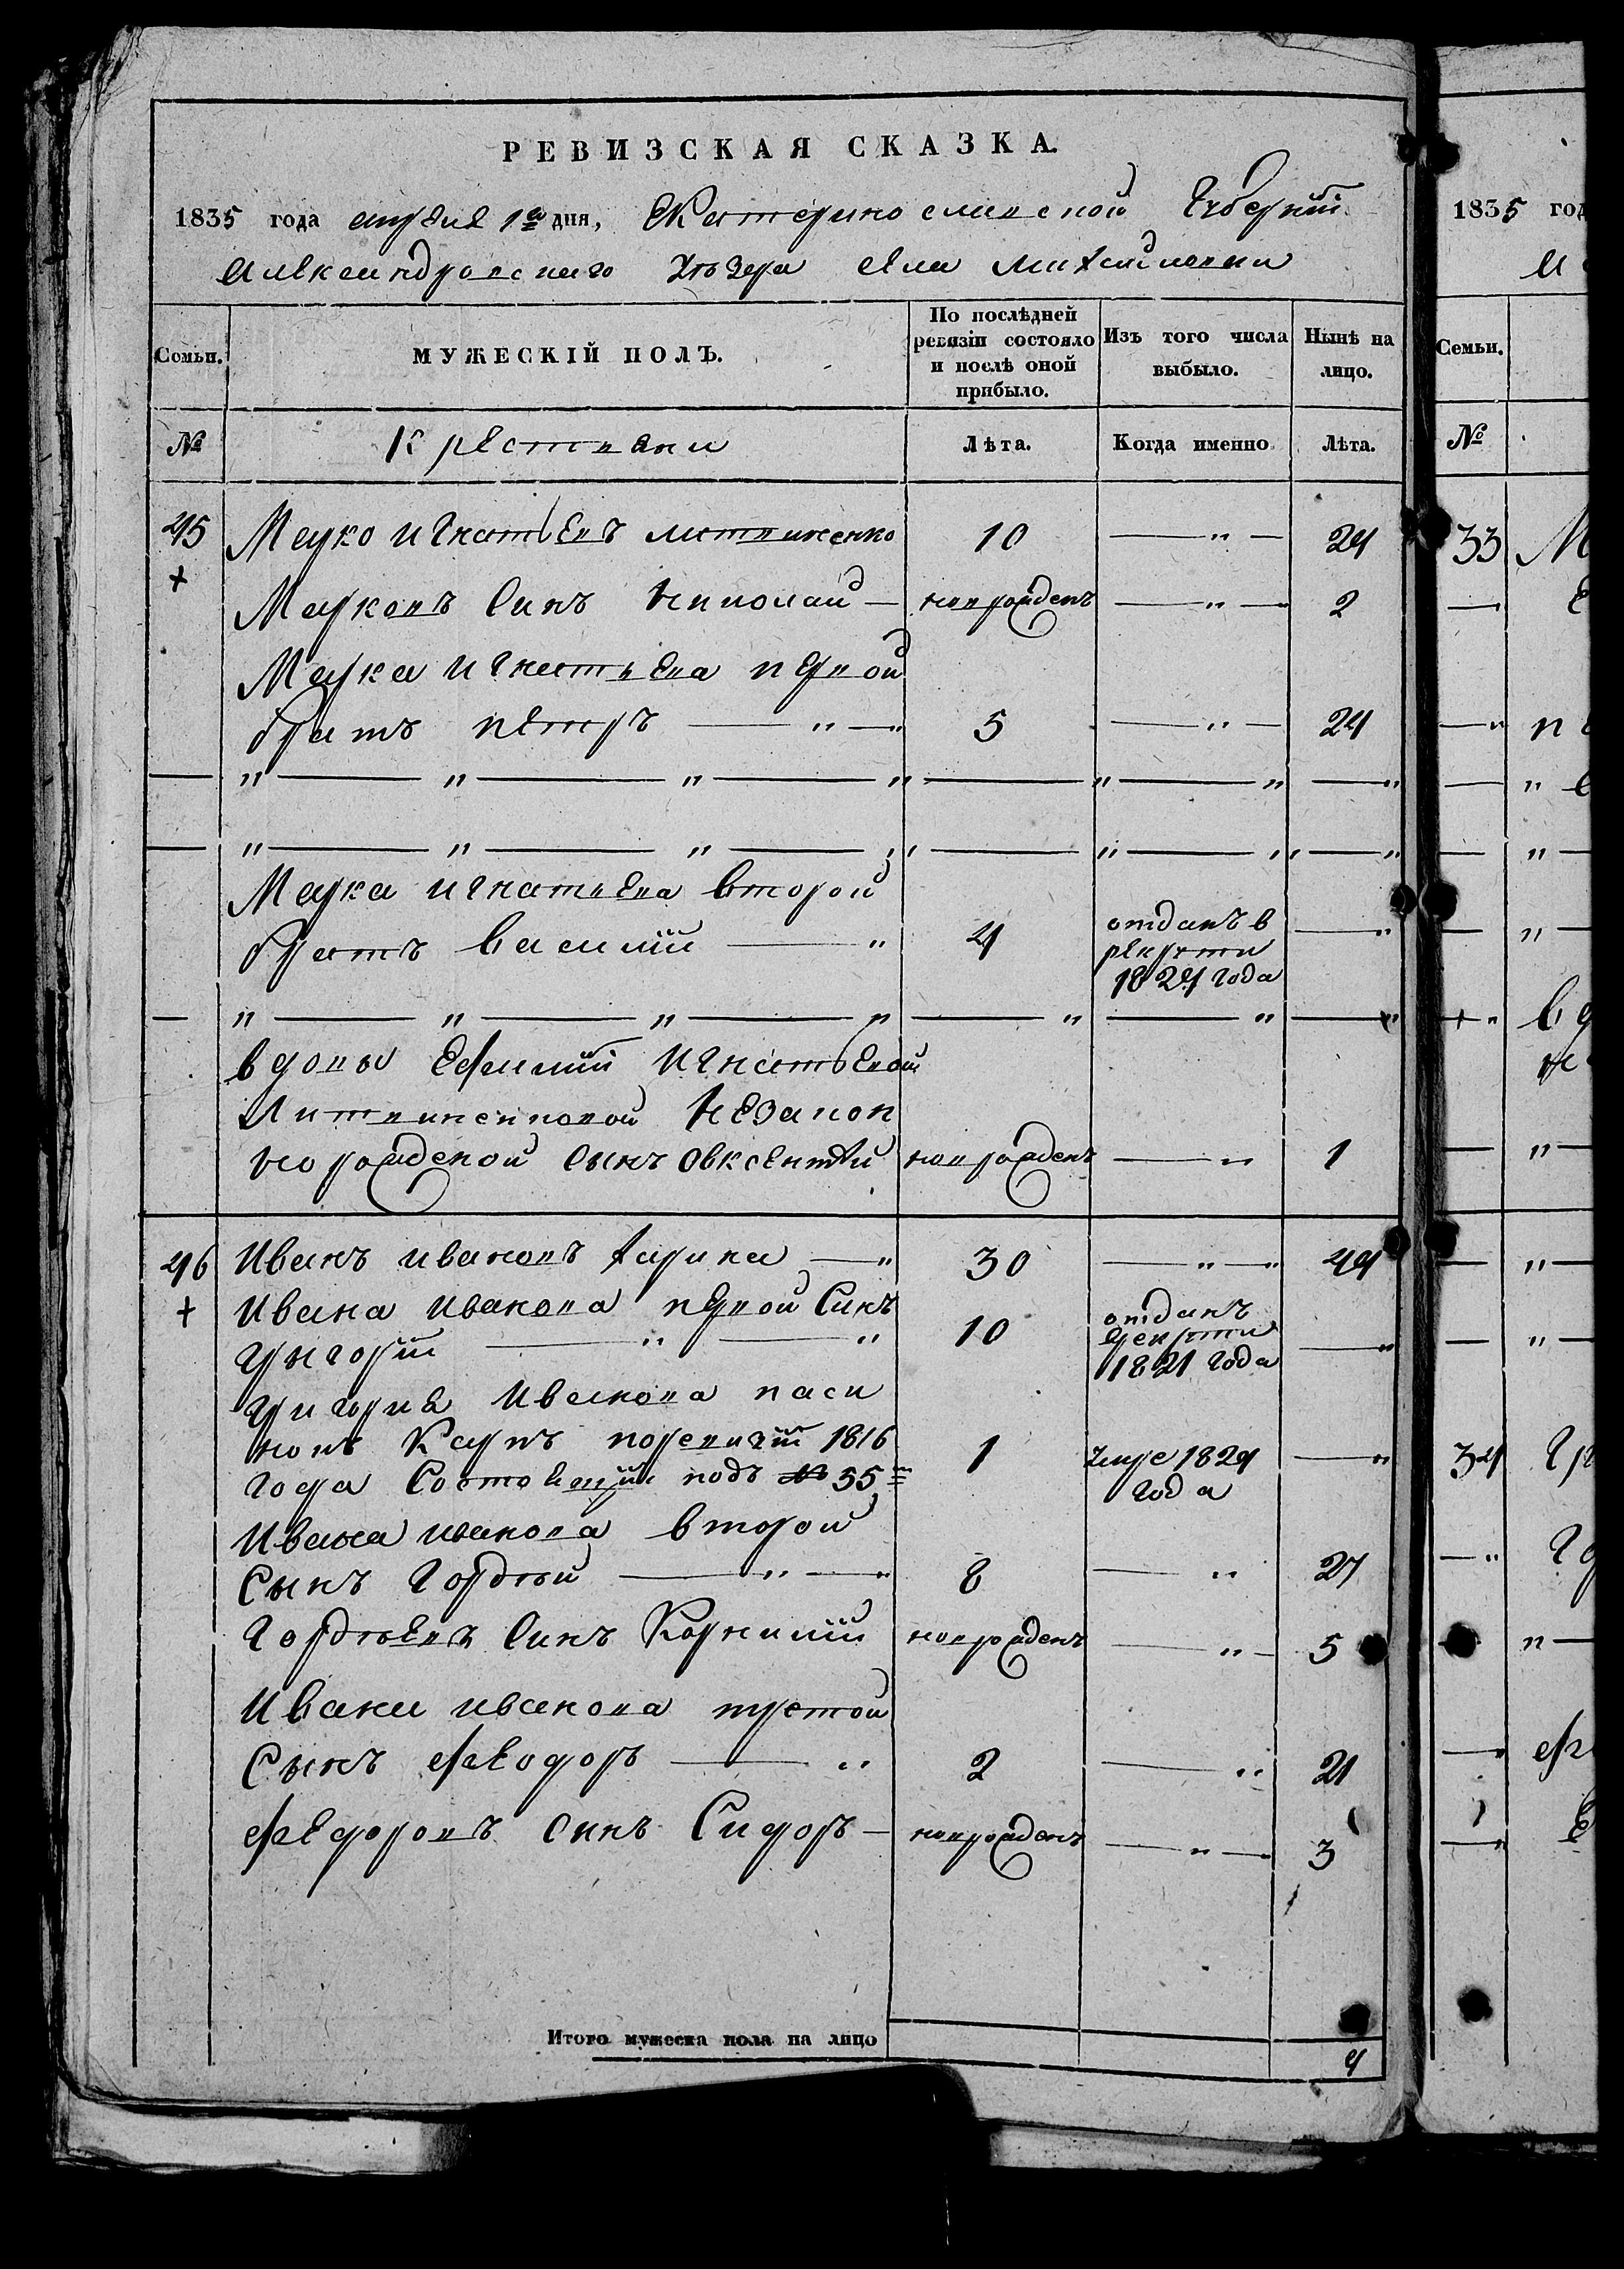 РЕВИЗСКАЯ СКАЗКА.
1835 года апреля 1го дня, Екатеринославской Губерніи
Александровскаго уъзда села Михайловки
Семьи.
МУЖЕСКІЙ ПОЛЪ.
По послѣдней ревизіи состояло и послѣ оной прибыло.
Изъ того числа выбыло.
Нынѣ на лицо.
№
Крестьяни
Лѣта.
Когда именно
Лѣта.
45 Марко Игнатьевъ Литвиненко 10 — " — 24
+
Марковъ Синъ Николай — новрожденъ — " — 2
Марка Игнатьева первой
братъ петръ — " — " 5 — " — 24
— " — " — " — " — " — " — "
— " — " — " — " — " — " — "
Марка Игнатьева второй
братъ василій — " 4 отданъ в рекрути 1824 года — "
— " — " — " — " — " — " — "
вдовы Ефиміи Игнатьевой
Литвиненковой незакон
норожденой сынъ Овксентій новрожденъ — " 1
46 Иванъ ивановъ 30 — " — " 49
+ Ивана Иванова первой Синъ
Григорій — " — " 10 отданъ рекрути 1821 года — "
Григорія Иванова паси
нокъ Карпъ поревизіи 1816
года Состоящій подъ № 55м 1 умре 1829 года — "
Ивана иванова второй
Сынъ Гордѣй — " — " 8 — " 27
Гордѣевъ Синъ Корнилій новрожденъ — " — 5
Ивана иванова третой
Сынъ Феодоръ — " 2 — " 21
Федоровъ Синъ Сидоръ — новрожденъ — " — 3
Итого мужеска пола на лицо
1835 год
Семьи.
№
33 М
34 Гр